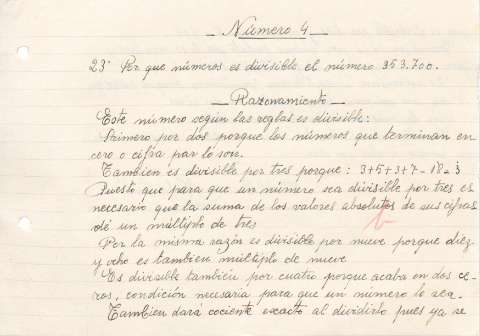 Número 4
23º Por que números es divisible el número 353.700.
Razonamiento
Este número según las reglas es divisible:
Primero por dos porque los números que terminan en
cero o cifra par lo son.
Tambien es divisible por tres porque: 3+5+3+7=18=3
Puesto que para que un número sea divisible por tres es
necesario que la suma de los valores absolutos de sus cifras
dé un múltiplo de tres
Por la misma razón es divisible por nueve porque diez
y ocho es tambien múltiplo de nueve
Es divisible tambien por cuatro porque acaba en dos ce-
ros, condición necesaria para que un número lo sea.
Tambien dará cociente exacto al dividirlo pues ya se